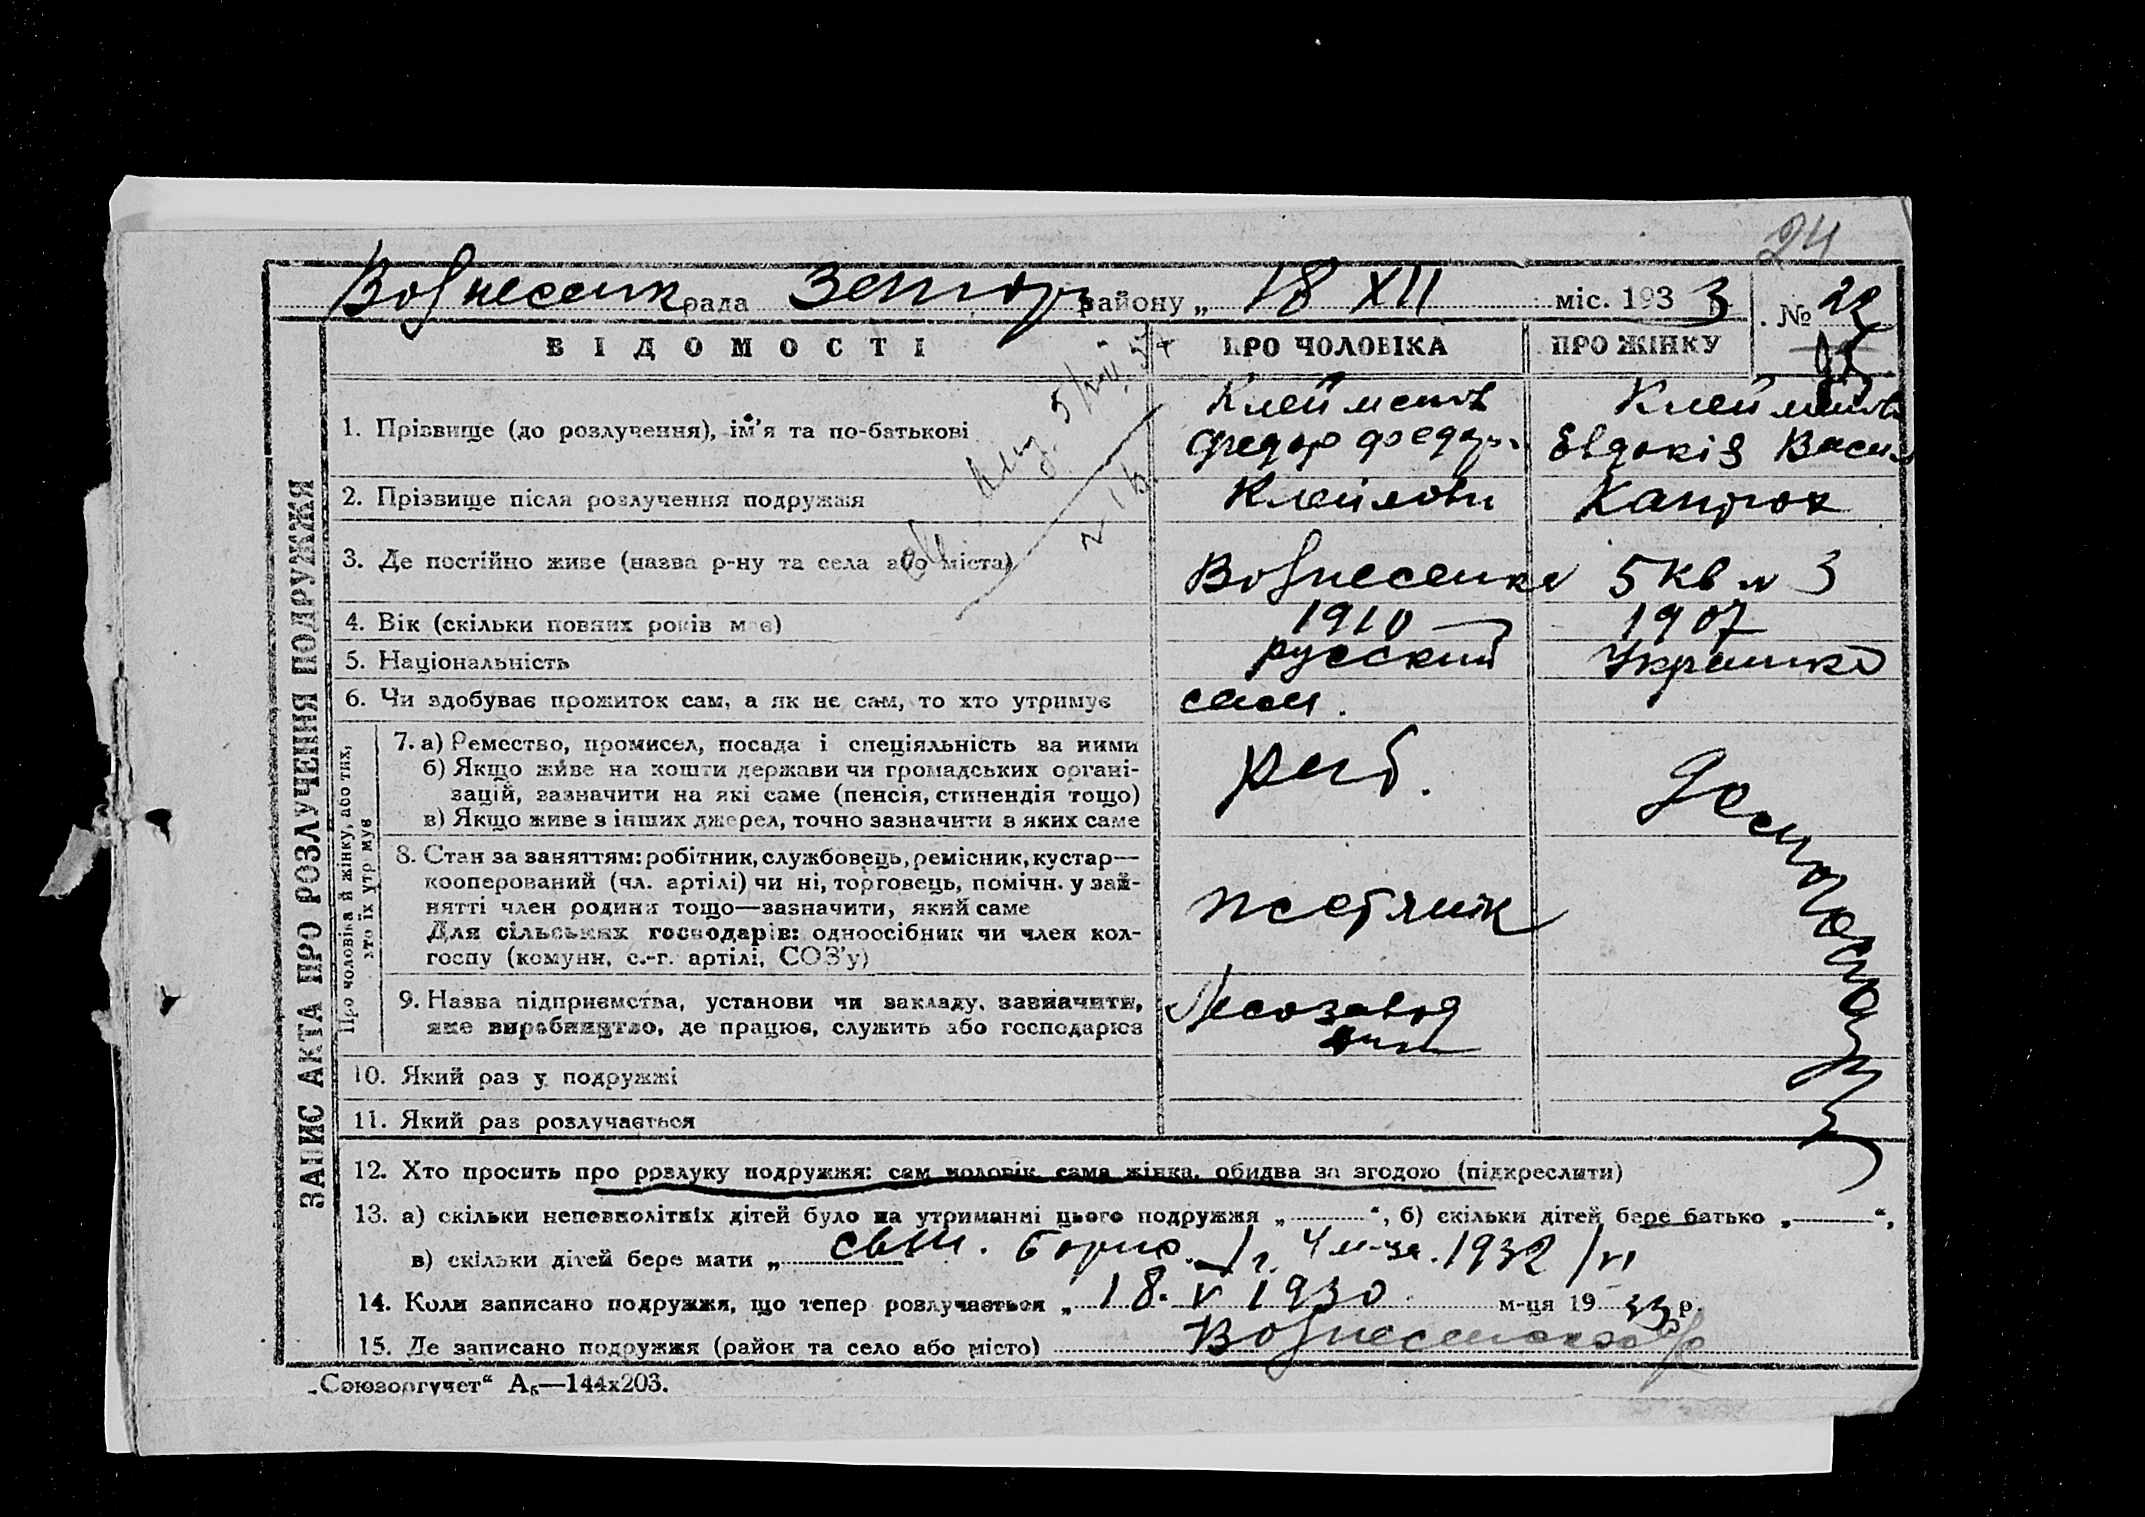 24
Вознесенк рада Запор району „ 18 XII міс. 1933 № 22
ВІДОМОСТІ ПРО ЧОЛОВІКА ПРО ЖІНКУ
ЗАПИС АКТА ПРО РОЗЛУЧЕННЯ ПОДРУЖЖЯ
1. Прізвище (до розлучення), ім'я та по-батькові
Клейменов
Федор Федор.
Клейменов
Евдокія Васил
2. Прізвище після розлучення подружжя
3. Де постійно живе (назва р-ну та села або міста) Вознесенка 5 кв № 3
4. Вік (скільки повних років має) 1910 1907
5. Національність русский Украинка
6. Чи здобуває прожиток сам, а як не сам, то хто утримує сам.
Про чоловіка й жінку, або тих,
хто їх утримує
7. а) Ремество, промисел, посада і спеціяльність за ними
б) Якщо живе на кошти держави чи громадських органі-
зацій, зазначити на які саме (пенсія, стипендія тощо)
в) Якщо живе з інших джерел, точно зазначити з яких саме
раб.
Домохозяй
8. Стан за заняттям: робітник, службовець, ремісник, кустар—
кооперований (чл. артілі) чи ні, торговець, помічн. у зай-
нятті член родини тощо—зазначити, який саме
Для сільських господарів: одноосібник чи член кол-
госпу (комуни, с.-г. артілі, СОЗ'у)
жестяник
9. Назва підприємства, установи чи закладу, зазначити,
яке виробництво, де працює, служить або господарює
Лесозавод
10. Який раз у подружжі
11. Який раз розлучається
12. Хто просить про розлуку подружжя: сам чоловік, сама жінка, обидва за згодою (підкреслити)
13. а) скільки неповнолітніх дітей було на утриманні цього подружжя „ “, б) скільки дітей бере батько „ “,
в) скільки дітей бере мати „ сын. Борис. 1 г. 4 м-ца. 1932 /VI
14. Коли записано подружжя, що тепер розлучається „ 18. V 1930 м-ця 1933 р.
15. Де записано подружжя (район та село або місто)
„Союзоргучет“ А₅—144х203.